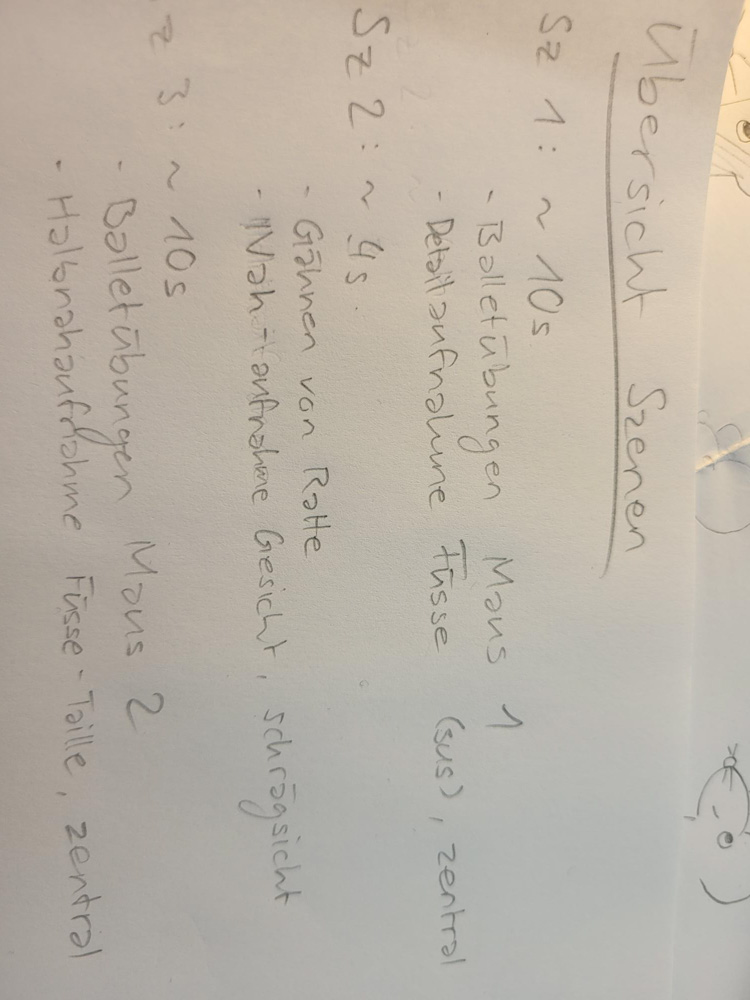 Übersicht Szenen
Sz 1: ~ 10s
- Balletübungen Maus 1
- Detailaufnahme Füsse (sus), zentral
Sz 2: ~ 4s.
- Gähnen von Ratte
- Nah-aufnahme Gesicht, schrägsicht
z 3: ~ 10s
- Balletübungen Maus 2
- Halbnahaufnahme Füsse-Taille, zentral